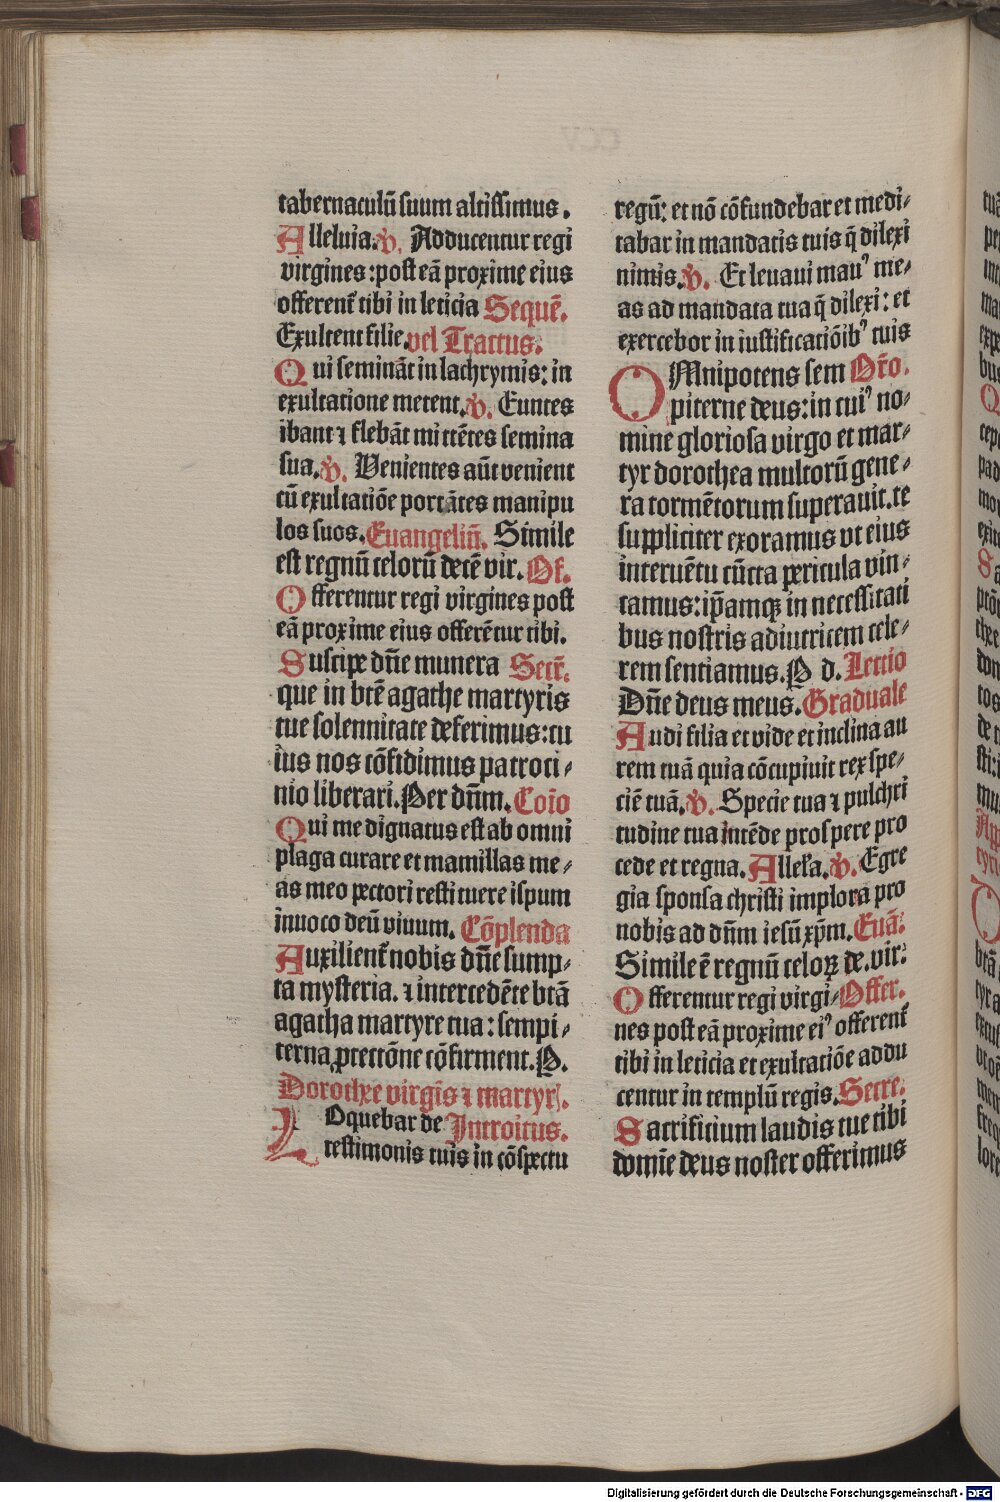 tabernaculū suum altissimus.
Alleluia. ℣. Adducentur regi
virgines: post eā proxime eius
offerent᷑ tibi in leticia Sequē.
Exultent filie. vel Tractus.
Qui semināt in lachrymis: in
exultatione metent. ℣. Euntes
ibant ⁊ flebāt mittētes semina
sua. ℣. Venientes aūt venient
cū exultatiōe portātes manipu
los suos. Euangeliū. Simile
est regnū celorū decē vir. Of.
Offerentur regi virgines post
eā proxime eius offerētur tibi.
Suscipe dn̄e munera Secr̄.
que in btē agathe martyris
tue solennitate deferimus: cu
ius nos cōfidimus patroci⸗
nio liberari. Per dn̄m. Coīo
Qui me dignatus est ab omni
plaga curare et mamillas me⸗
as meo pectori restituere ipsum
inuoco deū viuum. Cōplenda
Auxilient᷑ nobis dn̄e sump⸗
ta mysteria. ⁊ intercedēte btā
agatha martyre tua: sempi⸗
terna ꝓtectōne cōfirment. P.
Dorothee virgīs ⁊ martyr̄.
LOquebar de Introitus.
testimonis tuis in cōspectu
regū: et nō cōfundebar et medi⸗
tabar in mandatis tuis q̄ dilexi
nimis. ℣. Et leuaui manꝰ me⸗
as ad mandata tua q̄ dilexi: et
exercebor in iustificatiōibꝰ tuis
OMnipotens sem Or̄o.
piterne deus: in cuiꝰ no⸗
mine gloriosa virgo et mar⸗
tyr dorothea multorū gene⸗
ra tormētorum superauit. te
suppliciter exoramus vt eius
interuētu cūcta pericula vin⸗
camus: ip̄amqꝫ in necessitati
bus nostris adiutricem cele⸗
rem sentiamus. P d. Lectio
Dn̄e deus meus. Graduale
Audi filia et vide et inclina au
rem tuā quia cōcupiuit rex spe⸗
ciē tuā. ℣. Specie tua ⁊ pulchri
tudine tua intēde prospere pro
cede et regna. Alle̅a. ℣. Egre
gia sponsa christi implora pro
nobis ad dn̄m iesū xp̄m. Euā:
Simile ē regnū celoꝝ de. vir:
Offerentur regi virgi⸗ Offer.
nes post eā proxime eiꝰ offerent᷑
tibi in leticia et exultatiōe addu
centur in templū regis. Secre.
Sacrificium laudis tue tibi
domīe deus noster offerimus
Digitalisierung gefördert durch die Deutsche Forschungsgemeinschaft - DFG